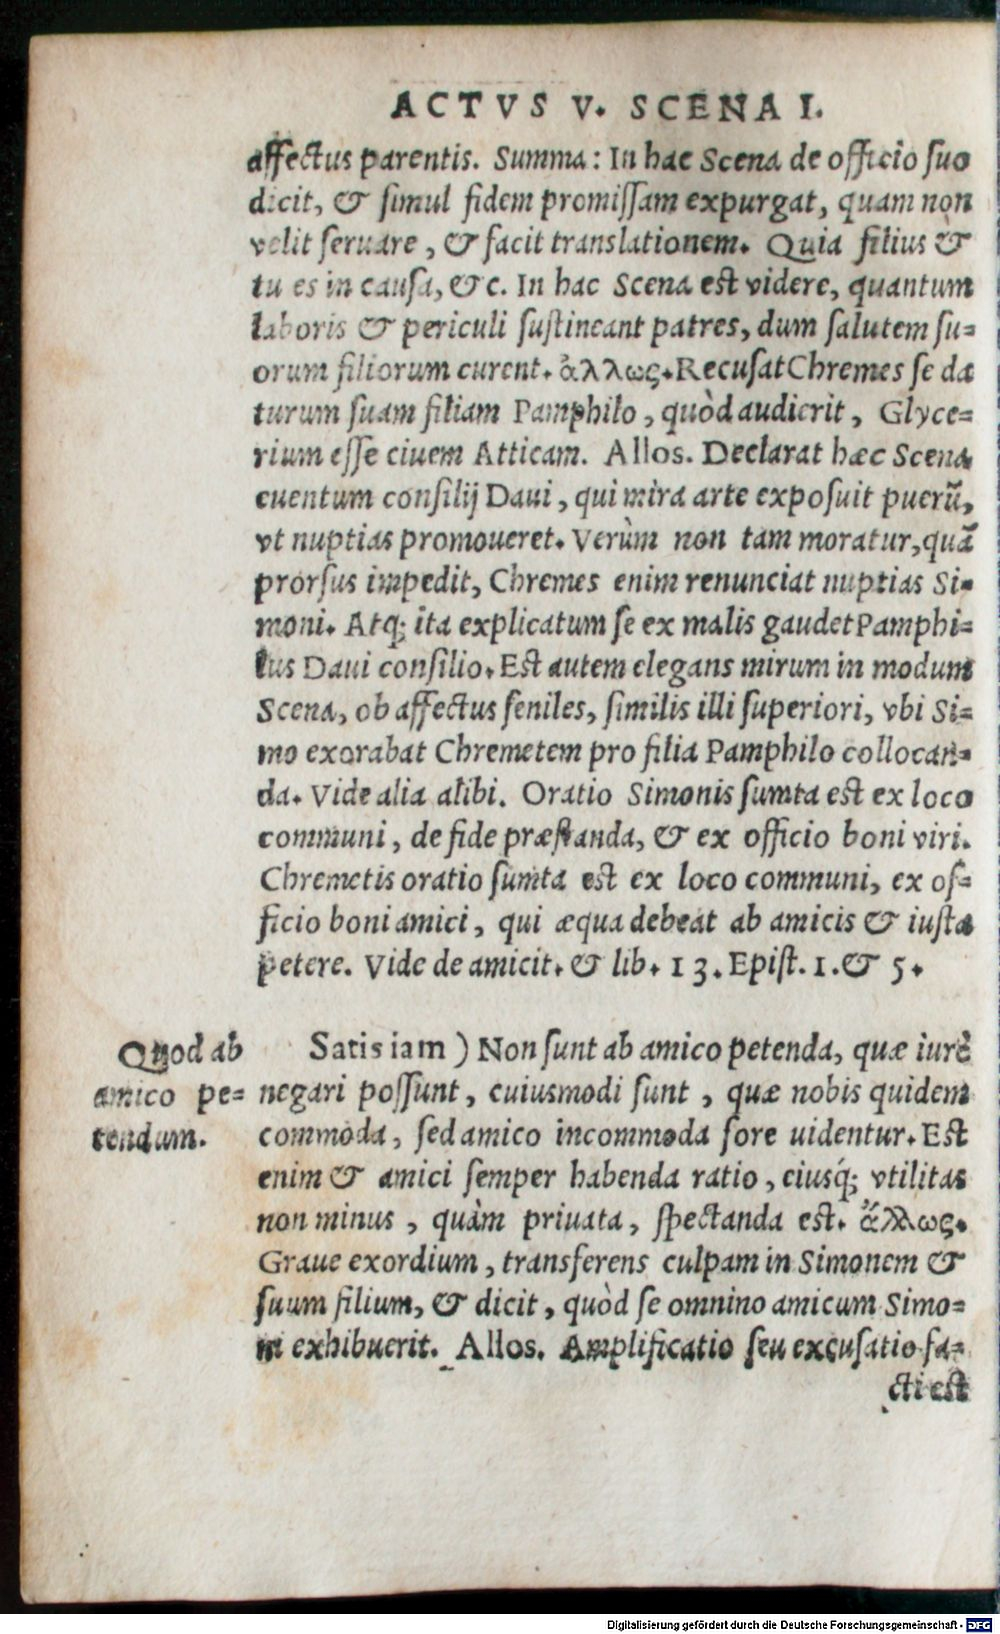 ACTVS V. SCENA I.
affectus parentis. Summa: In hac Scena de officio suo
dicit, & simul fidem promissam expurgat, quam non
velit seruare, & facit translationem. Quia filius &
tu es in causa, &c. In hac Scena est videre, quantum
laboris & periculi sustineant patres, dum salutem su-
orum filiorum curent. ἄλλως. Recusat Chremes se da
turum suam filiam Pamphilo, quòd audierit, Glyce-
rium esse ciuem Atticam. Allos. Declarat hæc Scena
euentum consilij Daui, qui mira arte exposuit puerũ,
vt nuptias promoueret. Verùm non tam moratur, quã
prorsus impedit, Chremes enim renunciat nuptias Si-
moni. Atq; ita explicatum se ex malis gaudet Pamphi-
lus Daui consilio. Est autem elegans mirum in modum
Scena, ob affectus seniles, similis illi superiori, vbi Si-
mo exorabat Chremetem pro filia Pamphilo collocan-
da. Vide alia alibi. Oratio Simonis sumta est ex loco
communi, de fide præstanda, & ex officio boni viri.
Chremetis oratio sumta est ex loco communi, ex of-
ficio boni amici, qui æqua debeat ab amicis & iusta
petere. Vide de amicit. & lib. 13. Epist. 1. & 5.
Quod ab
amico pe-
tendum.
Satis iam ) Non sunt ab amico petenda, quæ iurè
negari possunt, cuiusmodi sunt, quæ nobis quidem
commoda, sed amico incommoda fore uidentur. Est
enim & amici semper habenda ratio, eiusq́; vtilitas
non minus, quàm priuata, spectanda est. ἄλλως.
Graue exordium, transferens culpam in Simonem &
suum filium, & dicit, quòd se omnino amicum Simo-
ni exhibuerit. Allos. Amplificatio seu excusatio fa-
cti est
Digitalisierung gefördert durch die Deutsche Forschungsgemeinschaft - DFG